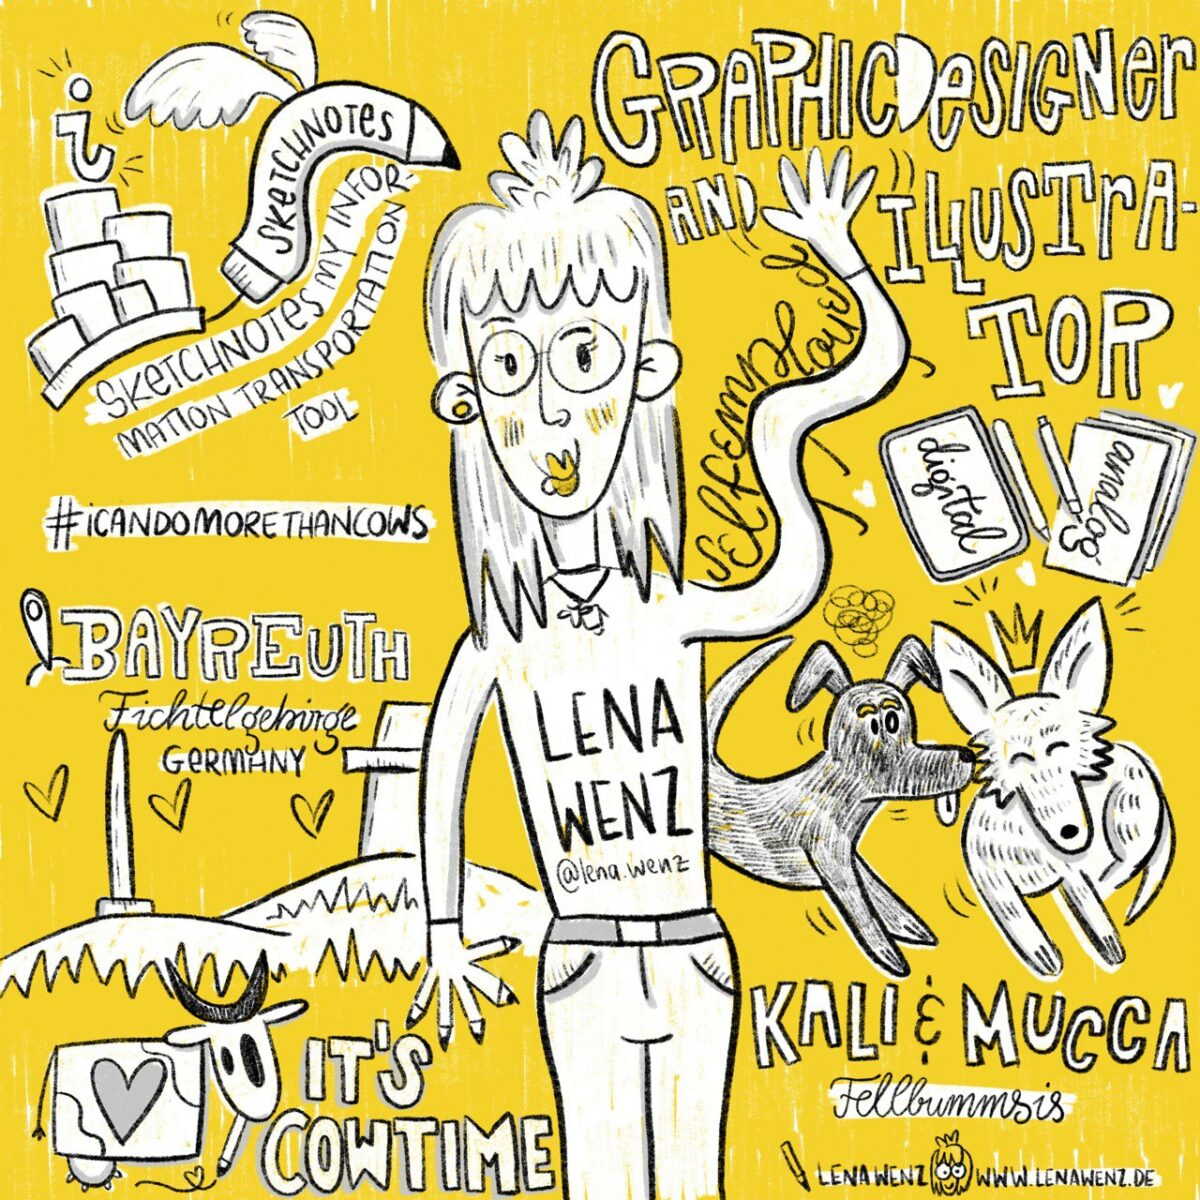 i
SKETCHNOTES
SKETCHNOTES MY INFOR-
MATION TRANSPORTATION
TOOL
GRAPHICDESIGNER
AND ILLUSTRA-
TOR
selfemployed
digital
analog
#ICANDOMORETHANCOWS
BAYREUTH
Fichtelgebirge
GERMANY
LENA
WENZ
@lena.wenz
IT'S
COWTIME
KALI & MUCCA
Fellbummsis
LENA WENZ WWW.LENAWENZ.DE